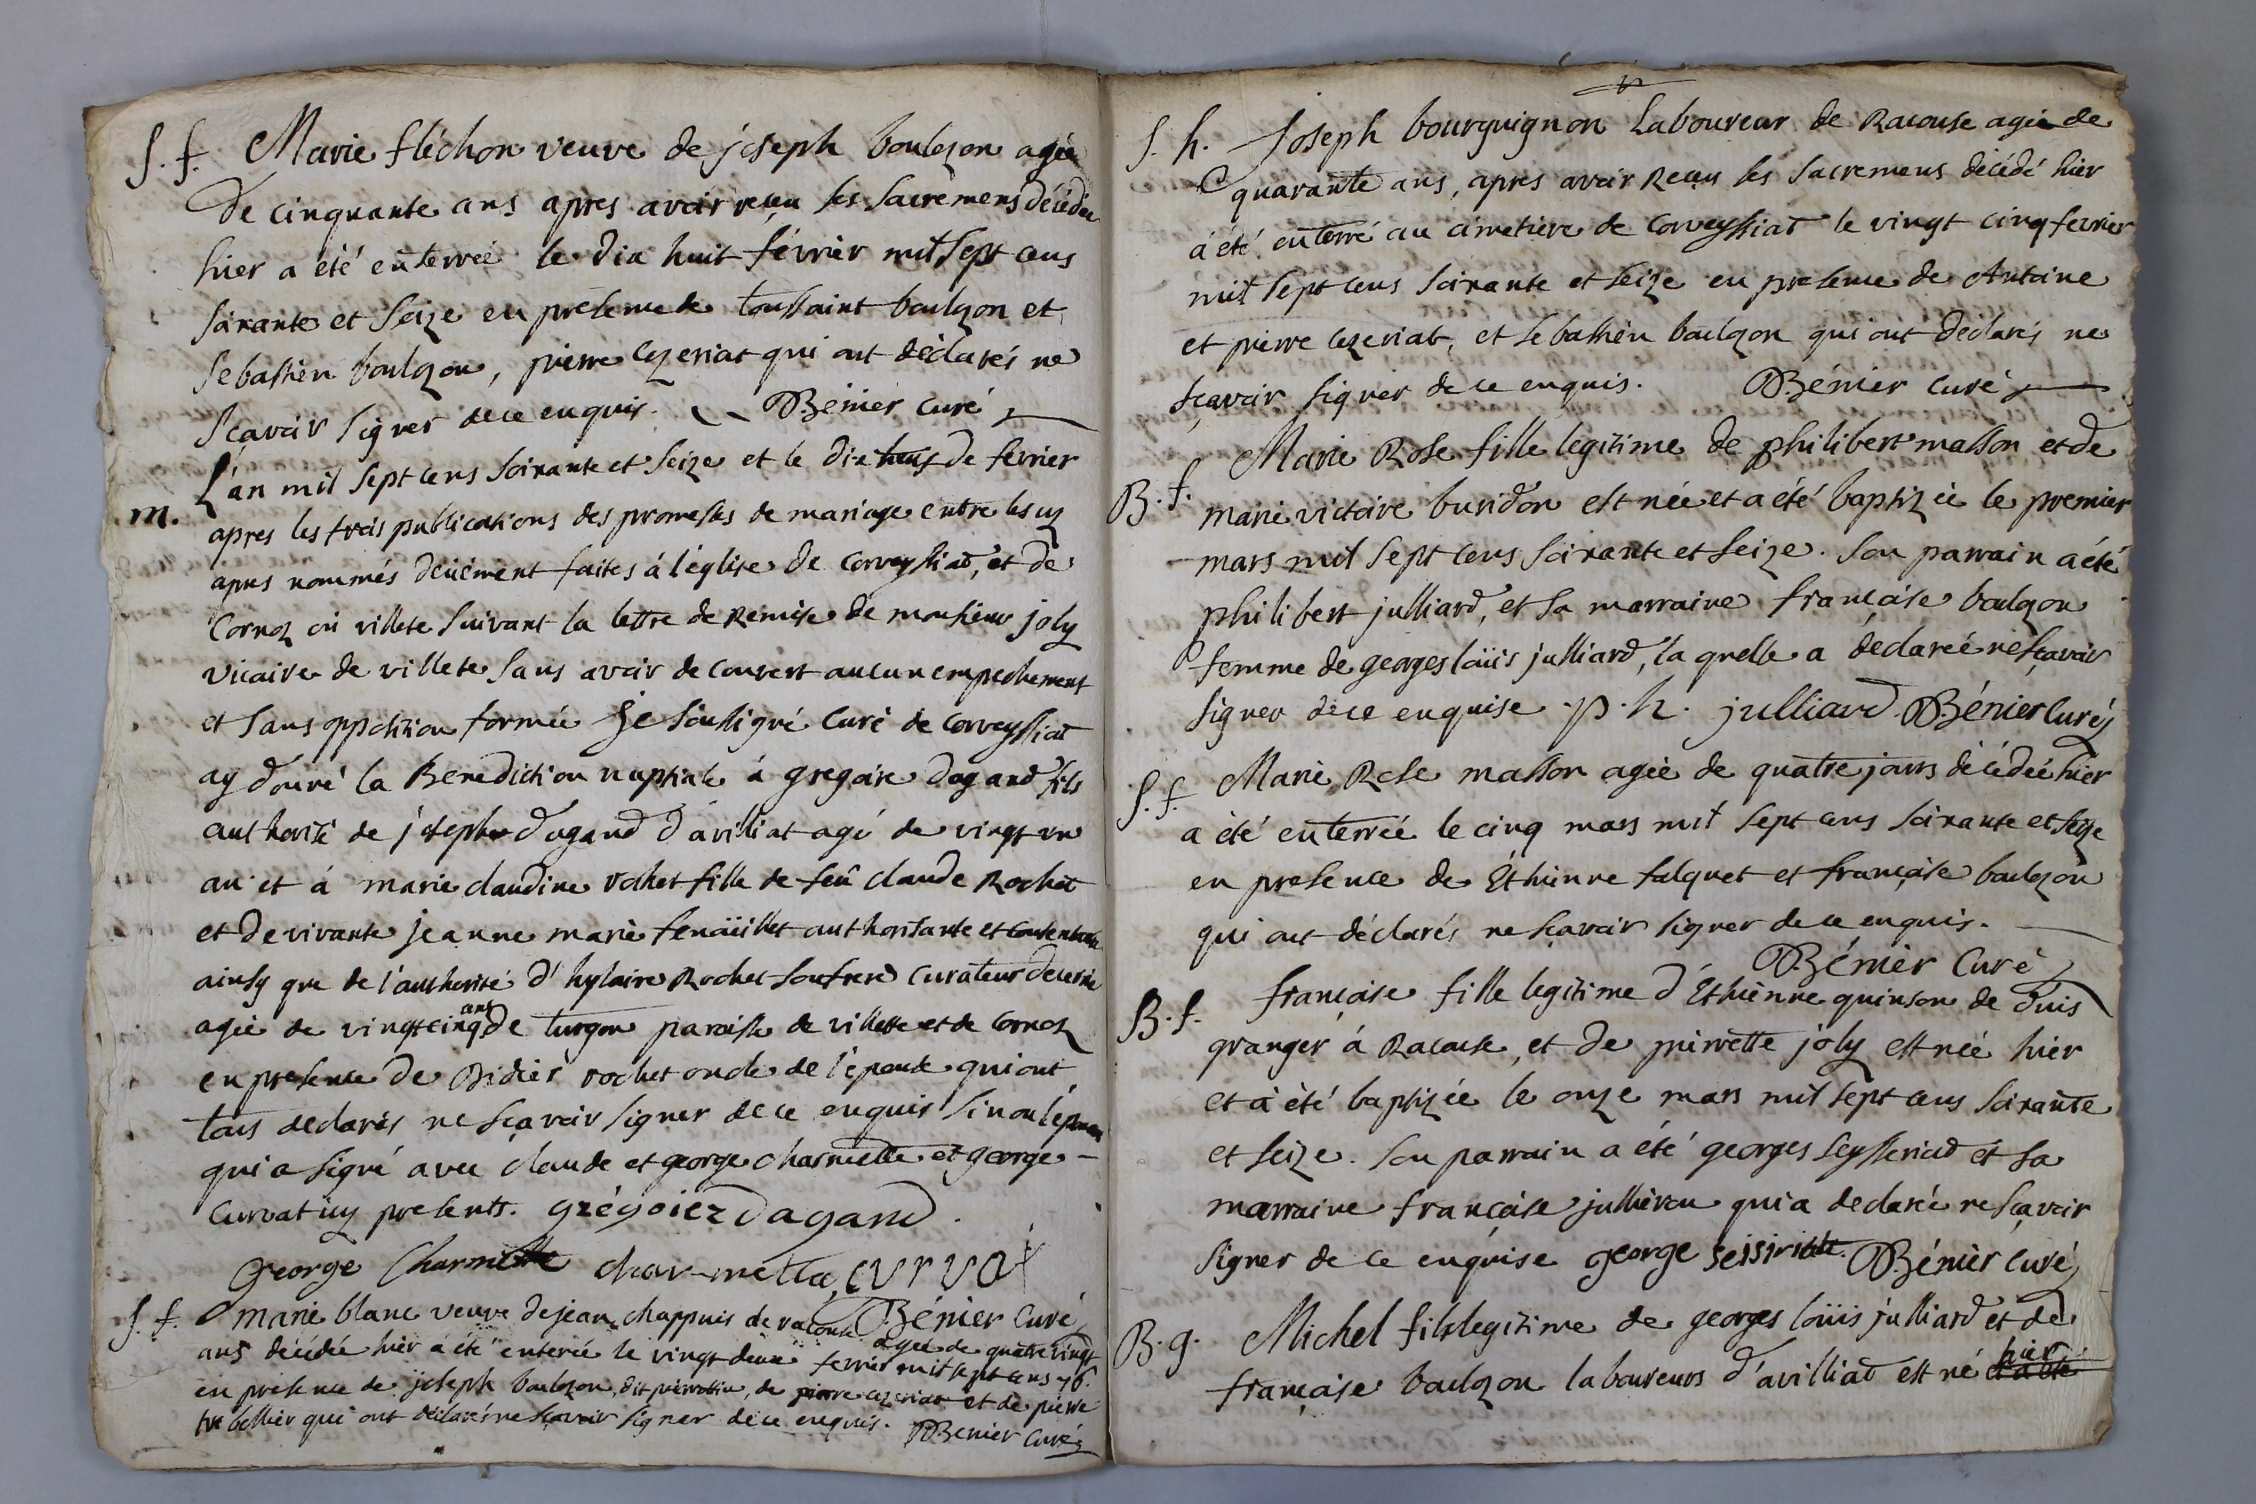 S. f. Marie flèchon veuve de joseph boulezon agèe
de cinquante ans apres avoir reçeu les sacremens décédée
hier a été enterrée le dix huit février mil sept cens
soixante et seize en presence de toussaint boulezon et
sebastien boulezon, pierre lezeriat qui ont déclarés ne
sçavoir signer de ce enquis. Bénier curé
m. L'an mil sept cens soixante et seize et le dix de fevrier
apres les trois publications des promesses de mariage entre les cy
apres nommés deüement faites á l'église de corveyssiat, et de
Cornoz où villete suivant la lettre de remise de monsieur joly
vicaire de villete sans avoir decouvert aucun empechement
et sans oppositiou formée je soussigné curé de corveyssiat
ay donné la Benediction nuptiale á gregoire dagand fils
authorisé de joseph dagand d'avilliat agé de vingt un
an et á marie claudine rochet fille de feû claude Rochet
et de vivante jeanne marie fenoüillet authorisante et consentante
ainsy que de l'authorité d'hylaire Rochet son frere curateur decerné
agée de vingt cinq ans de turgon paroisse de villette et de Cornoz
en presence de Didier rochet oncle de l'épouse qui ont
tous declarés ne sçavoir signer de ce enquis sinon l'époux
qui a signé avec claude et george charmette et george
curvat icy presents. grégoiez dagand.
George Charmette charmetta, curvat
Bénier curé
S. f. marie blanc veuve de jean chappuis de racouse agée de quatre vingt
ans décédée hier á été enterée le vingt deux fevrier mil sept cens 76.
en presence de joseph boulezon, dit pierrottin, de pierre lezeriat et de pierre
trebellier qui ont déclarés ne sçavoir signer de ce enquis. Bénier Curé
S. h. Joseph bourguignon Laboureur de Racouse agée de
quarante ans, apres avoir Receu les sacremens décédé hier
á été enterré au cimetiere de Corveyssiat le vingt cinq fevrier
mil sept cens soixante et seize en presence de Antoine
et pierre lezeriat, et sebastien boulezon qui ont déclarés ne
sçavoir signer de ce enquis. Bénier curé
B. f. Marie Rose fille legitime de philibert masson et de
marie victoire buridon est née et a été baptizée le premier
mars mil sept cens soixante et seize. son parrain a été
philibert julliard, et sa marraine françoise boulezon
femme de georges loüis julliard, la quelle a déclarée ne sçavoir
signer de ce enquise .p.h. julliard. Bénier Curé
S. f. Marie Rose masson agée de quatre jours décédée hier
a été enterrée le cinq mars mil sept cens soixante et seize
en presence de Ethienne falquet et françoise boulezon
qui ont déclarés ne sçavoir signer de ce enquis.
Bénier Curé
B. f. françoise fille legitime d'Ethienne quinson de duis
granger á Racouse, et de pierrette joly est née hier
et á été baptizée le onze mars mil sept cens soixante
et seize. son parrain a été georges seysseriad et sa
marraine françoise jullieron qui a declarée ne sçavoir
signer de ce enquise george Bénier curé
B. g. Michel fils legitime de georges loüis julliard et de
françoise boulezon laboureurs d'avilliad est né hier